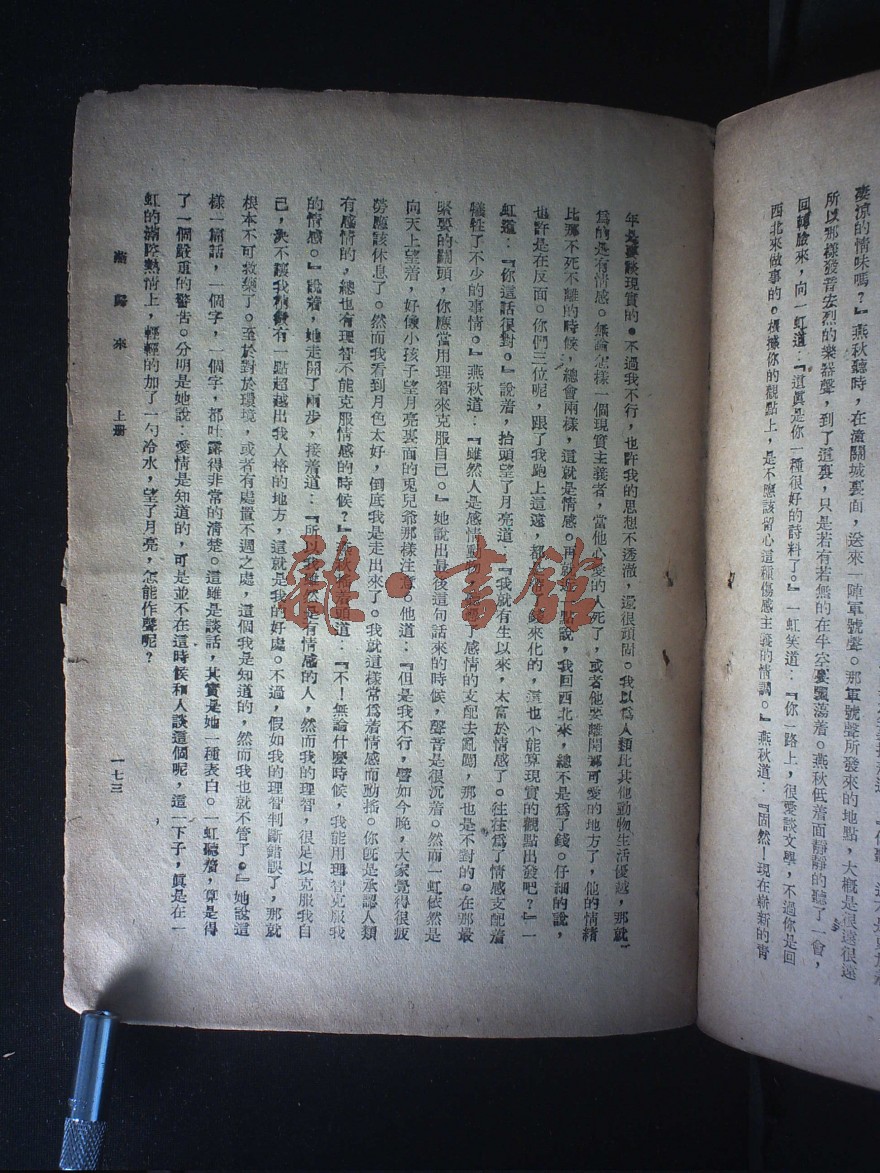 淒涼的情味嗎?』燕秋聽時,在潼關城裏面,送來一陣軍號聲。那軍號聲所發來的地點,大概是很遠很遠
所以那樣發音宏烈的樂器聲,到了這裏,只是若有若無的在半空裏飄蕩着。燕秋低着面靜靜的聽了一會,
回轉臉來,向一虹道:『這眞是你一種很好的詩料了。』一虹笑道:『你一路上,很愛談文學,不過你是回
西北來做事的。根據你的觀點上,是不應該留心這種傷感主義的情調。』燕秋道:『固然!現在嶄新的靑
年是要談現實的。不過我不行,也許我的思想不透澈,還很頑固。我以爲人類比其他動物生活優越,那就
爲的是有情感。無論怎樣一個現實主義者,當他心愛的人死了,或者他要離開那可愛的地方了,他的情緒
比那不死不離的時候,總會兩樣,這就是情感。再就近一點說,我回西北來,總不是爲了錢。仔細的說,
也許是在反面。你們三位呢,跟了我跑上這遠,都是用錢來化的,這也不能算現實的觀點出發吧?』一
虹道:『你這話很對。』說着,抬頭望了月亮道『我就有生以來,太富於情感了。往往爲了情感支配着
犧牲了不少的事情。』燕秋道:『雖然人是感情動物,爲了感情的支配去亂闖,那也是不對的。在那最
緊要的關頭,你應當用理智來克服自己。』她說出最後這句話來的時候,聲音是很沉着。然而一虹依然是
向天上望着,好像小孩子望月亮裏面的兎兒爺那樣注意。他道:『但是我不行,譬如今晚,大家覺得很疲
勞應該休息了。然而我看到月色太好,倒底我是走出來了。我就這樣常爲着情感而動搖。你旣是承認人類
有感情的,總也有理智不能克服情感的時候?』燕秋搖着頭道:『不!無論什麼時候,我能用理智克服我
的情感。』說着,她走開了兩步,接着道:『所以我雖然是有情感的人,然而我的理智,很足以克服我自
己,決不讓我稍微有一點超越出我人格的地方,這就是我的好處。不過,假如我的理智判斷錯誤了,那就
根本不可救藥了。至於對於環境,或者有處置不週之處,這個我是知道的,然而我也就不管了。』她說這
樣一篇話,一個字,一個字,都吐露得非常的淸楚。這雖是談話,其實是她一種表白。一虹聽着,算是得
了一個嚴重的警告。分明是她說,愛情是知道的,可是並不在這時候和人談這個呢,這一下子,眞是在一
虹的滿腔熱情上,輕輕的加了一勺冷水,望了月亮,怎能作聲呢?
燕歸來 上册 一七三
雜·書館